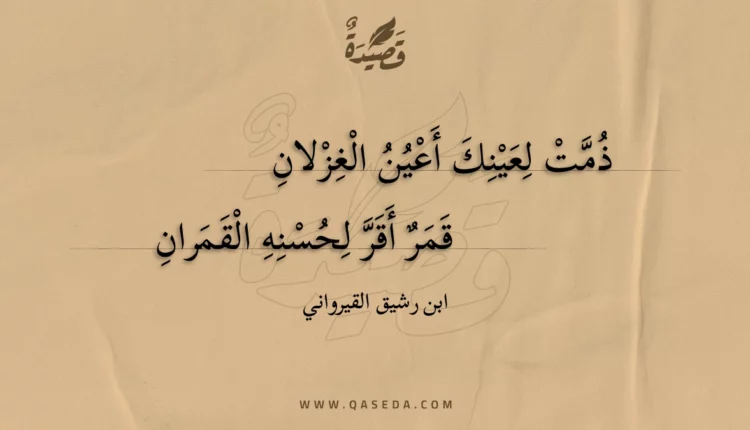 قَصِيدَةٌ
ذُمَّتْ لِعَيْنِكَ أَعْيُنُ الْغِزْلانِ
قَمَرٌ أَقَرَّ لِحُسْنِهِ الْقَمَرانِ
ابن رشيق القيرواني
WWW.QASEDA.COM